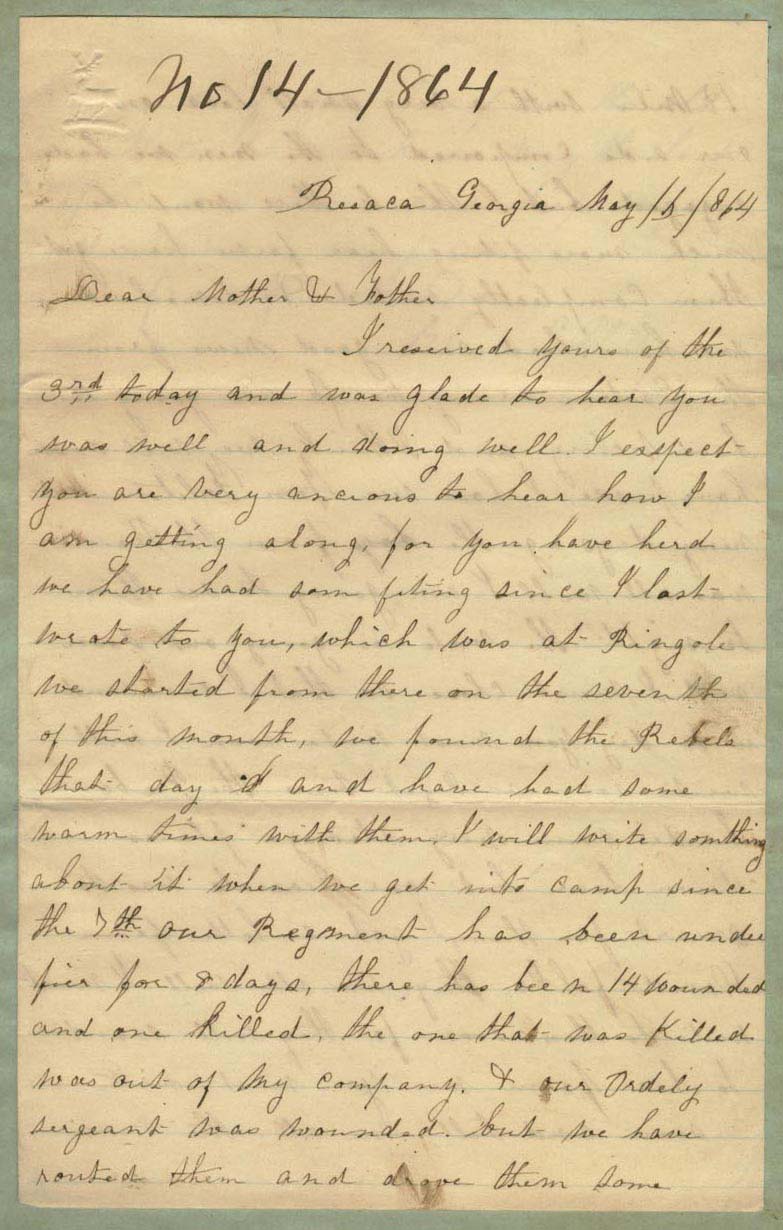 No 14 - 1864
Resaca Georgia May 16 / 864
Dear Mother & Father
I reseived yours of the
3rd today and was glade to hear you
was well and doing well. I exspect
you are very ancious to hear how I
am getting along, for you have herd
we have had som fiting since I last
wrote to you, which was at Ringole
we started from there on the seventh
of this month, we found the Rebels
that day and have had some
warm times with them. I will write somthing
about it when we get into camp since
the 7th our Regment has been under
fier for 8 days, there has been 14 wounded
and one killed, the one that was Killed
was out of my company. & our Ordely
sergeant was wounded. but we have
routed them and drove them some